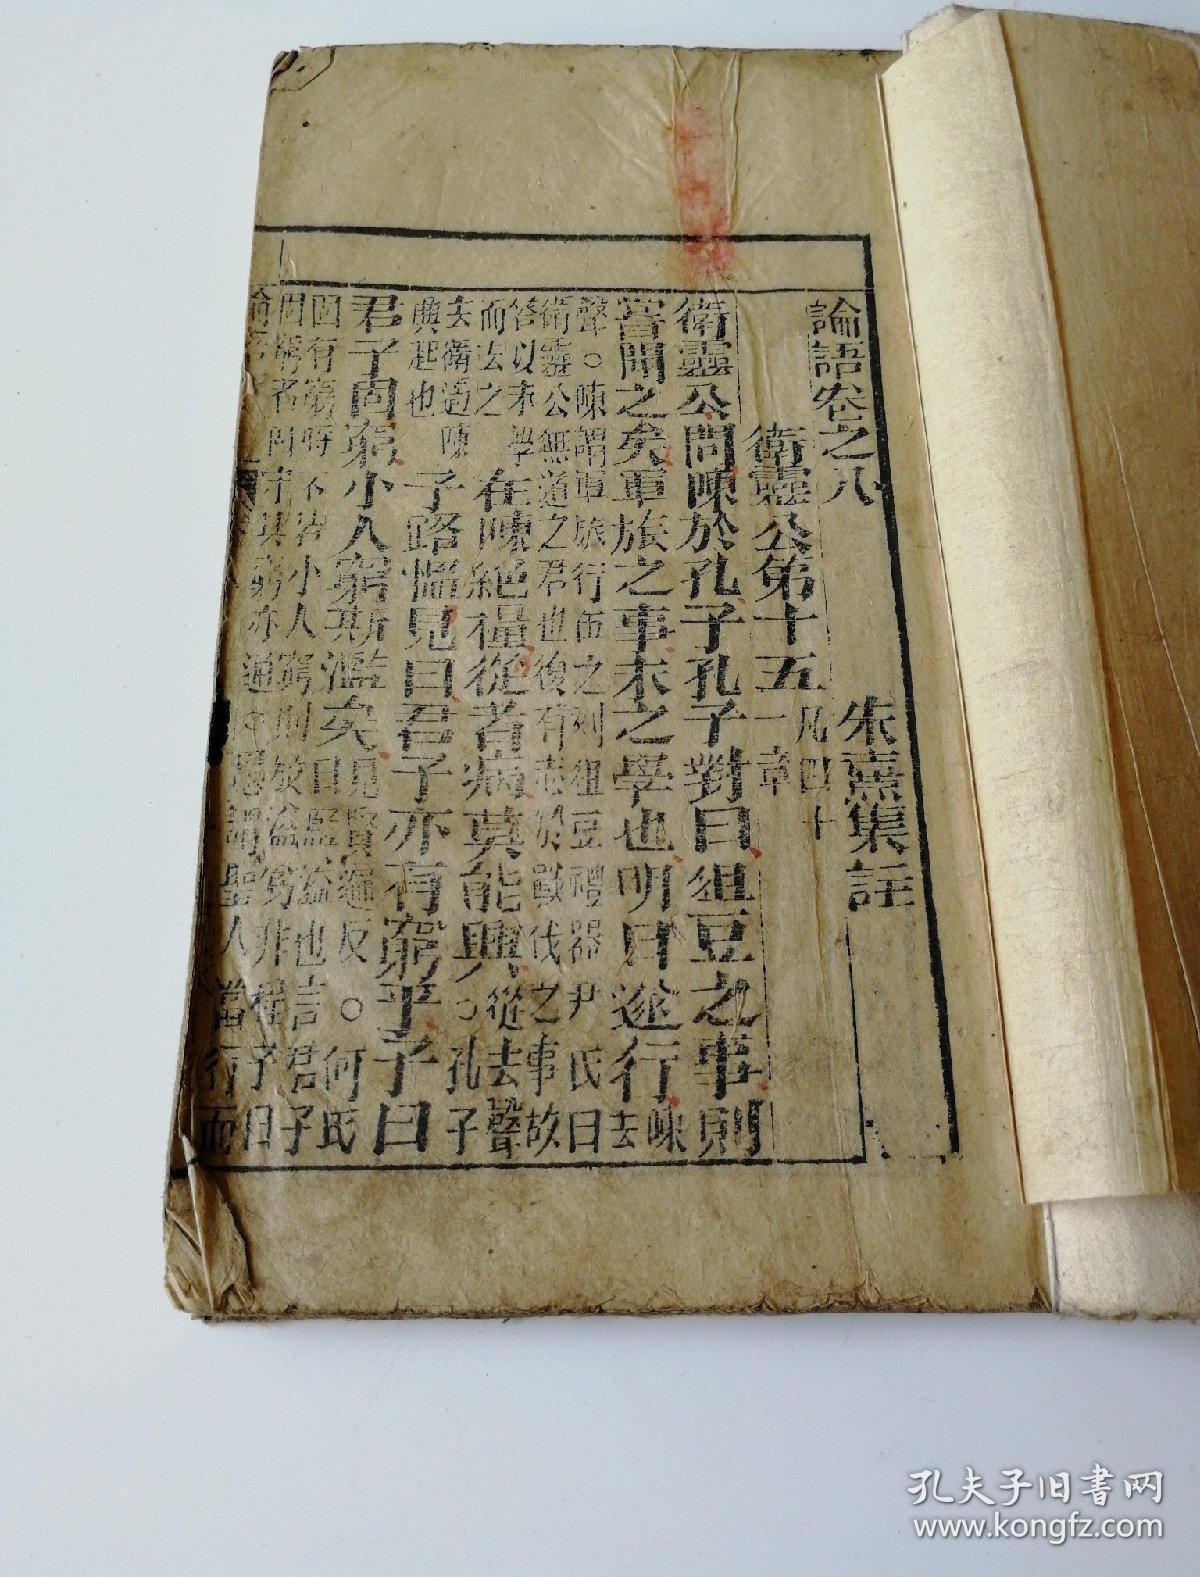 論語卷之八　朱熹集註
衛靈公第十五
凡四十
一章
衛靈公問陳於孔子孔子對曰俎豆之事則
嘗聞之矣軍旅之事未之學也明日遂行
陳
去
聲○陳謂軍旅行伍之列俎豆禮器尹氏曰
衛靈公無道之君也後有志於戰伐之事故
答以未學
而去之
在陳絕糧從者病莫能興
從去聲
○孔子
去衛適陳
興起也
子路慍見曰君子亦有窮乎子曰
君子固窮小人窮斯濫矣
見賢遍反○何氏
曰濫溢也言君子
固有窮時不若小人窮則放溢 非程子曰
固窮者固守其窮亦通○愚謂聖人當行而
孔夫子旧书网
www.kongfz.com